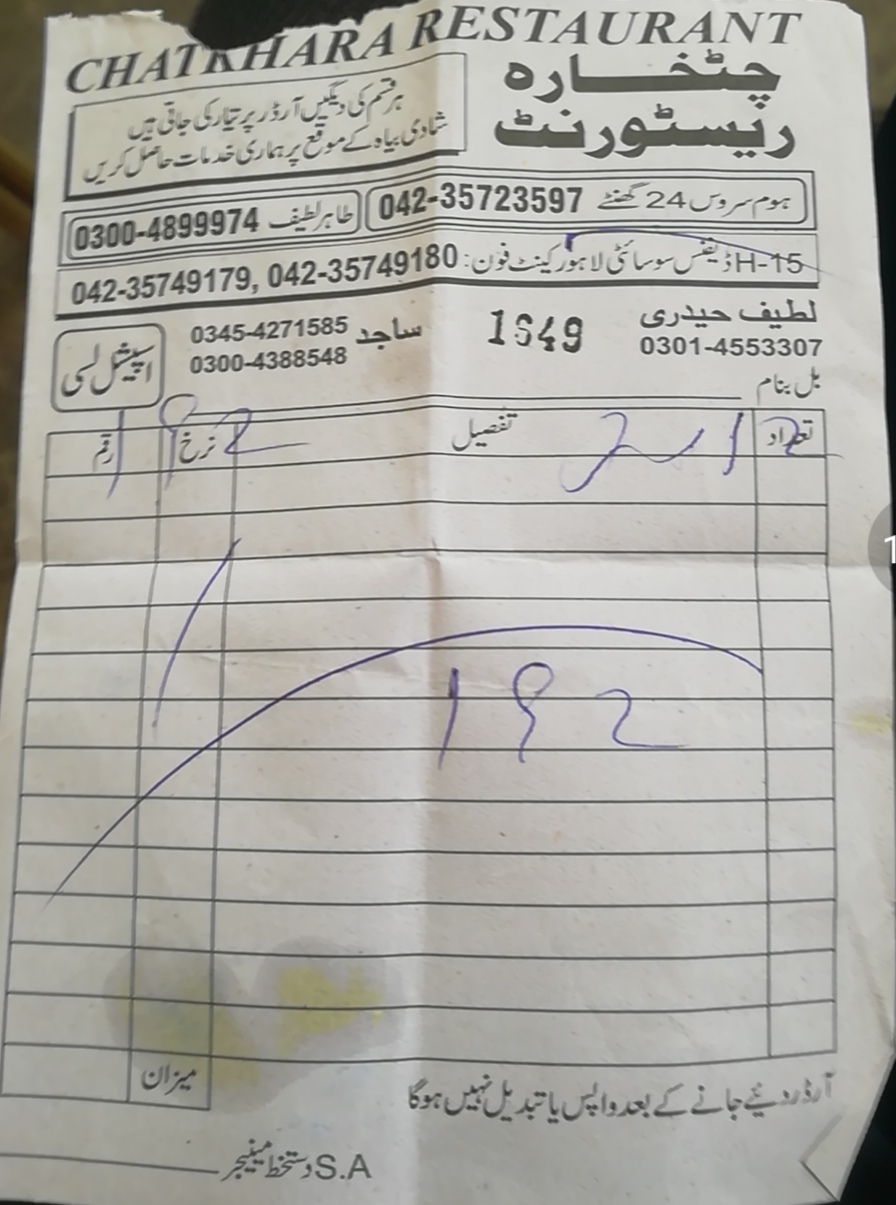 CHATKHARA RESTAURANT
چٹخارہ
ریسٹورنٹ
ہر قسم کی دیگیں آرڈر پر تیار کی جاتی ہیں
شادی بیاہ کے موقع پر ہماری خدمات حاصل کریں
ہوم سروس 24 گھنٹے 042-35723597
طاہر لطیف 0300-4899974
H-15 ڈیفنس سوسائٹی لاہور کینٹ فون: 042-35749179, 042-35749180
لطیف حیدری
0301-4553307
1649
ساجد 0345-4271585
0300-4388548
اسپیشل لسی
بل بنام
تعداد تفصیل نرخ رقم
192
192
میزان
آرڈر دیئے جانے کے بعد واپس یا تبدیل نہیں ہوگا
S.A دستخط مینیجر